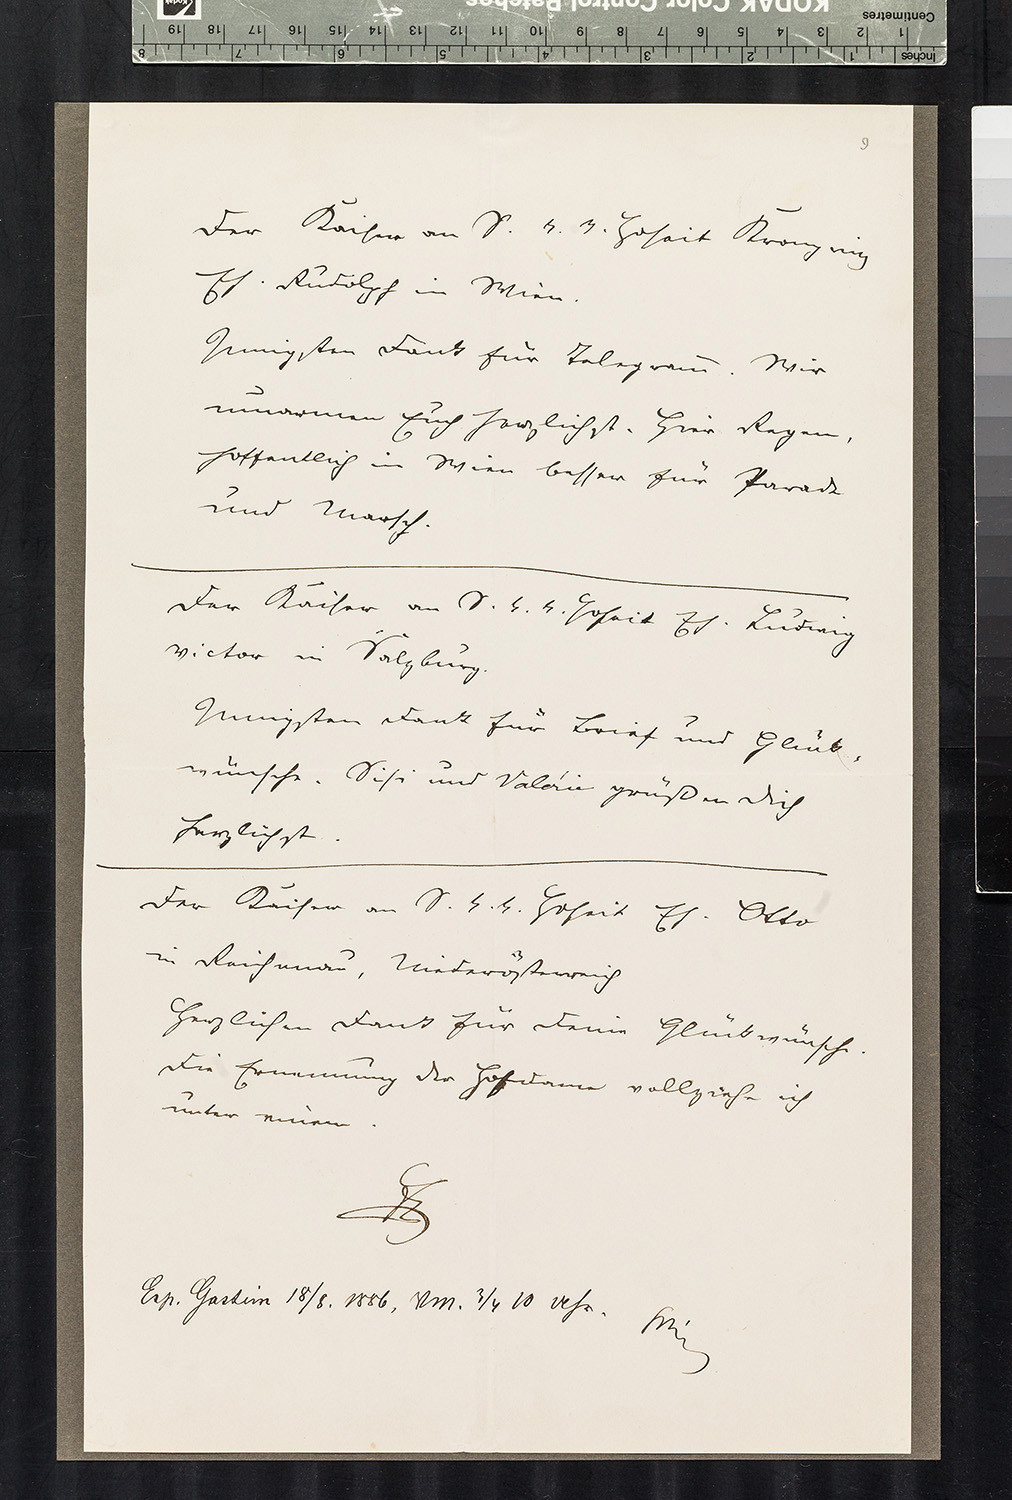 KODAK Color Control Patches
Centimetres
1 2 3 4 5 6 7 8 9 10 11 12 13 14 15 16 17 18 19
Inches
1 2 3 4 5 6 7 8
Kodak
9
Der Kaiser an S. k. k. Hoheit Kronprinz
Eh. Rudolph in Wien.
Innigsten Dank für Telegram̅. Wir
umarmen Euch herzlichst. Hier Regen,
hoffentlich in Wien besser für Parade
und Marsch.
Der Kaiser an S. k. k. Hoheit Eh. Ludwig
Victor in Salzburg.
Innigsten Dank für Brief und Glück-
wünsche. Sisi und Valérie grüßen Dich
herzlichst.
Der Kaiser an S. k. k. Hoheit Eh. Otto
in Reichenau, Niederösterreich
Herzlichen Dank für Deine Glückwünsche.
Die Ernennung der Hofdame vollziehe ich
unter einem.
Exp. Gastein 18/8. 1886, Vm. 3/4 10 Uhr.